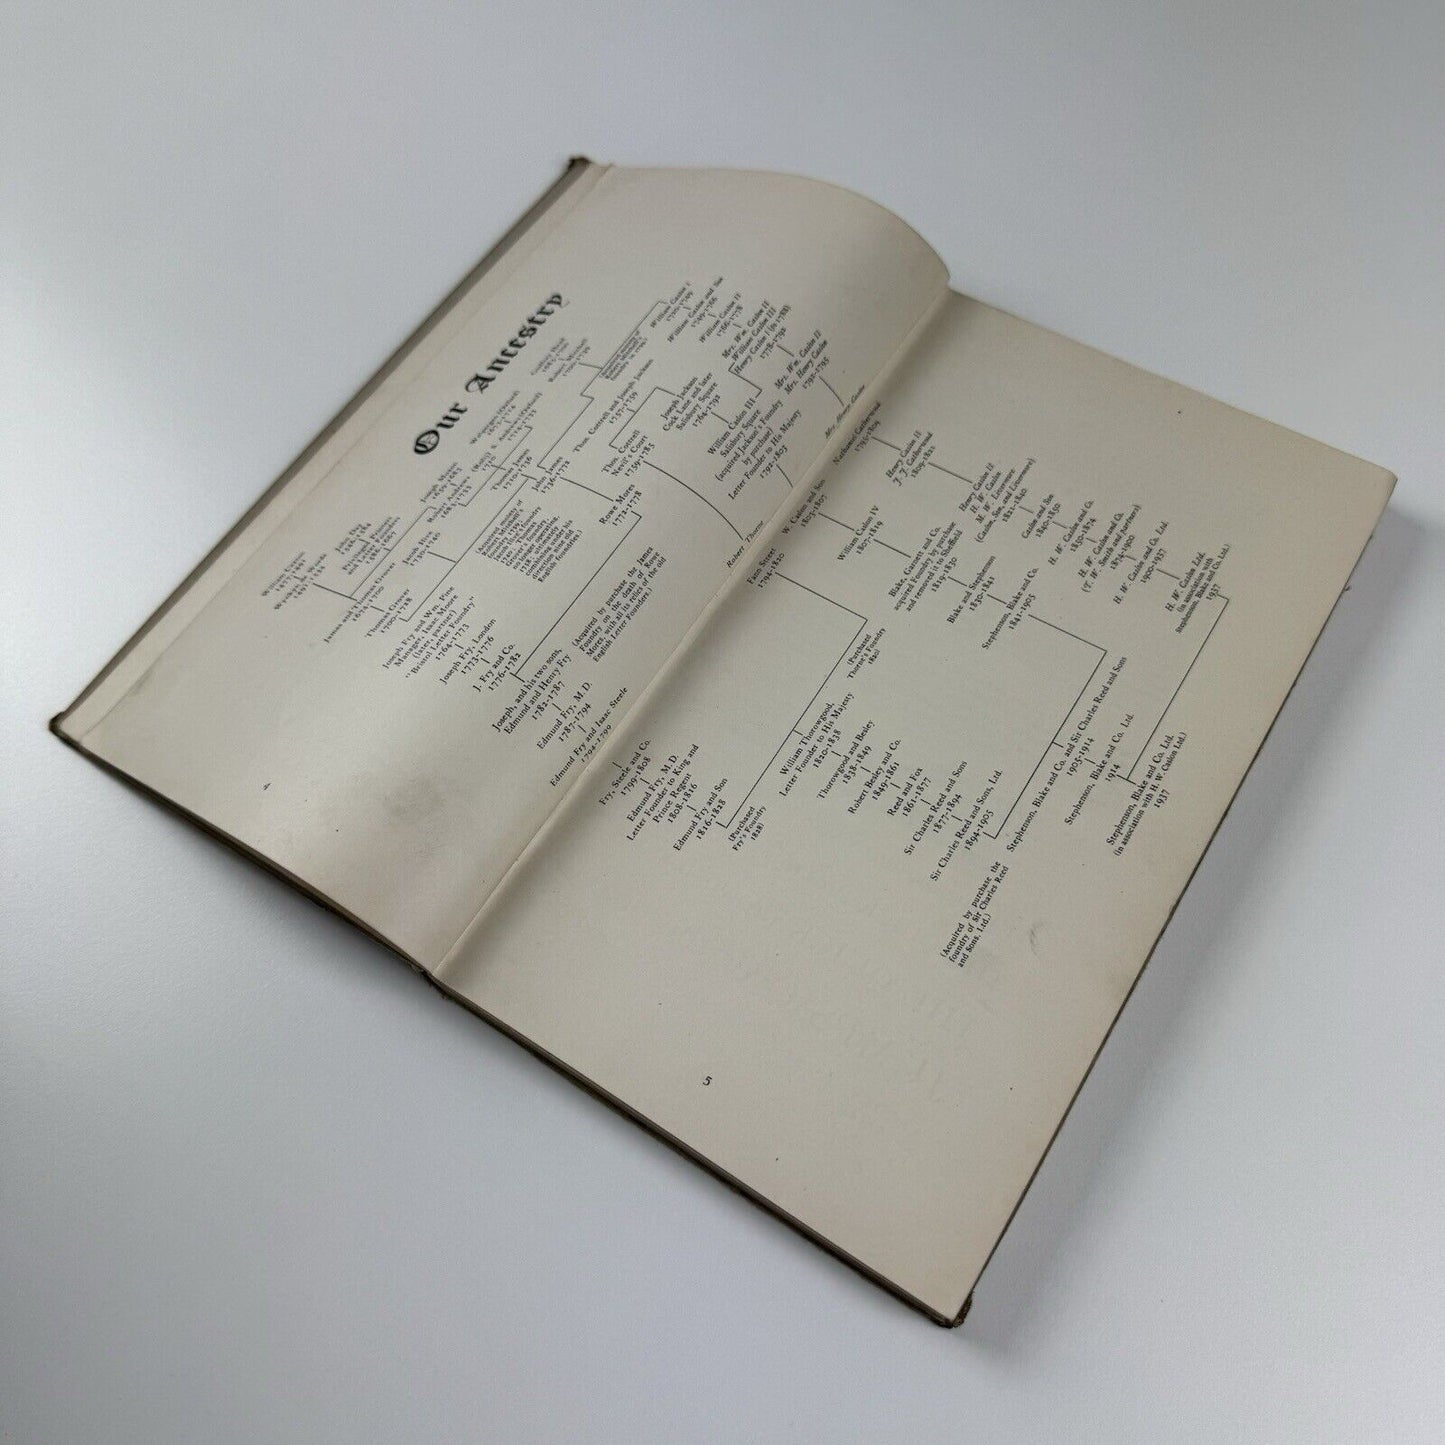 Our Ancestry
William Caxton
1477-1491
Wynkyn de Worde
1491-1535
John Day
1546-1584
Joseph Moxon
1659-1683
Robert Andrews
1683-1733
Thomas James
1710-1736
John James
1736-1772
William Caslon I
1720-1739
William Caslon and Son
1739-1766
William Caslon II
1766-1778
Mrs. Wm. Caslon II
William Caslon III
1778-1792
Mrs. Wm. Caslon II
Mrs. Henry Caslon
1792-1795
Mrs. Henry Caslon
James and Thomas Grover
1674-1700
Thomas Grover
1700-1728
Jacob Ilive
1730-1740
Rowe Mores
1772-1778
Thos. Cottrell and Joseph Jackson
1757-1759
Thos. Cottrell
Nevil's Court
1759-1785
Joseph Jackson
Cock Lane and later
Salisbury Square
1764-1792
William Caslon III
Salisbury Square
(acquired Jackson's Foundry
by purchase)
Letter Founder to His Majesty
1792-1803
Robert Thorne
Joseph Fry and Wm. Pine
Manager, Isaac Moore
(later, partner)
"Bristol Letter Foundry"
1764-1773
Joseph Fry, London
1773-1776
J. Fry and Co.
1776-1782
(Acquired by purchase the James
Foundry on the death of Rowe
Mores, with all its relics of the old
English Letter Founders.)
Joseph, and his two sons,
Edmund and Henry Fry
1782-1787
Edmund Fry, M.D.
1787-1794
Edmund Fry and Isaac Steele
1794-1799
4
Nathaniel Catherwood
1795-1809
Henry Caslon II
F. F. Catherwood
1809-1821
Henry Caslon II
H. W. Caslon
M. W. Livermore
(Caslon, Son, and Livermore)
1821-1840
Caslon and Son
1840-1850
H. W. Caslon and Co.
1850-1874
H. W. Caslon and Co.
(T. W. Smith and Partners)
1874-1900
H. W. Caslon and Co. Ltd.
1900-1937
H. W. Caslon Ltd.
(in association with
Stephenson, Blake and Co. Ltd.)
1937
W. Caslon and Son
1803-1807
William Caslon IV
1807-1819
Blake, Garnett and Co.
acquired Foundry by purchase
and removed it to Sheffield
1819-1830
Blake and Stephenson
1830-1841
Stephenson, Blake and Co.
1841-1905
Fann Street
1794-1820
(Purchased
Thorne's Foundry
1820)
William Thorowgood,
Letter Founder to His Majesty
1820-1838
Thorowgood and Besley
1838-1849
Robert Besley and Co.
1849-1861
Reed and Fox
1861-1877
Sir Charles Reed and Sons
1877-1894
Sir Charles Reed and Sons, Ltd.
1894-1905
Fry, Steele and Co.
1799-1808
Edmund Fry, M.D.
Letter Founder to King and
Prince Regent
1808-1816
Edmund Fry and Son
1816-1828
(Purchased
Fry's Foundry
1828)
Stephenson, Blake and Co. and Sir Charles Reed and Sons
1905-1914
Stephenson, Blake and Co. Ltd.
1914
Stephenson, Blake and Co. Ltd.
(in association with H. W. Caslon Ltd.)
1937
(Acquired by purchase the
foundry of Sir Charles Reed
and Sons, Ltd.)
5